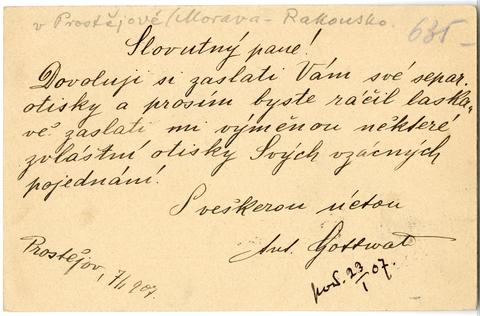 v Prostějově (Morava - Rakousko.
635-
Slovutný pane!
Dovoluji si zaslati Vám své separ.
otisky a prosím byste ráčil laska-
vě zaslati mi výměnou některé
zvláštní otisky Svých vzácných
pojednání.
S veškerou úctou
Ant. Gottwald
Prostějov, 7/I 907.
pod. 23/I 07.